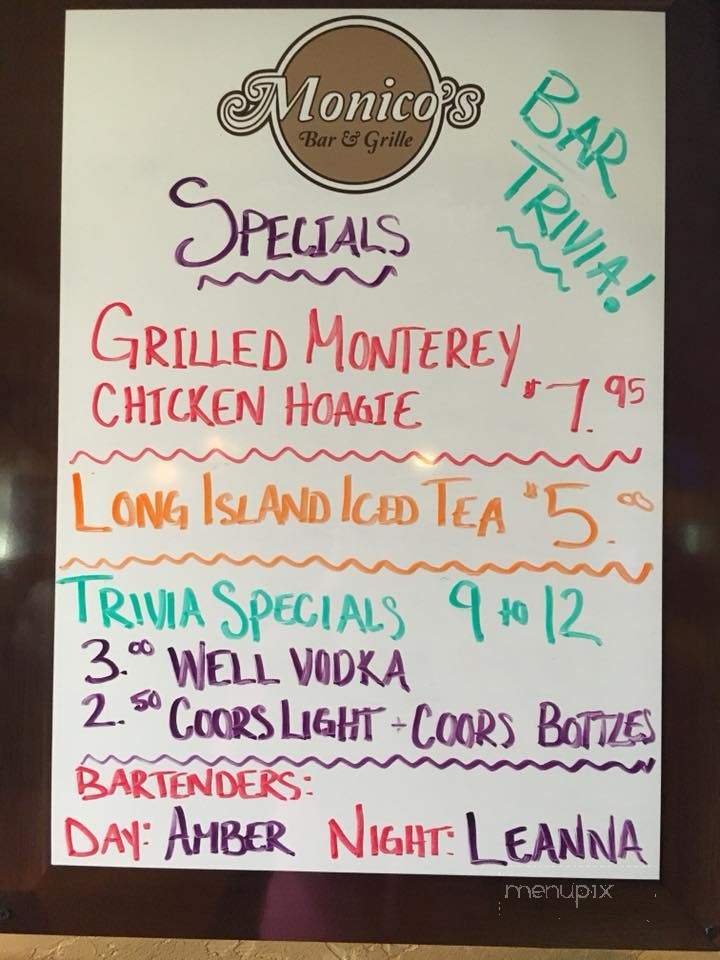 Monico's
Bar & Grille
BAR
TRIVIA!
SPECIALS
GRILLED MONTEREY
CHICKEN HOAGIE $7.95
LONG ISLAND ICED TEA $5.00
TRIVIA SPECIALS 9 to 12
3.00 WELL VODKA
2.50 COORS LIGHT - COORS BOTTLES
BARTENDERS:
DAY: AMBER NIGHT: LEANNA
menupix